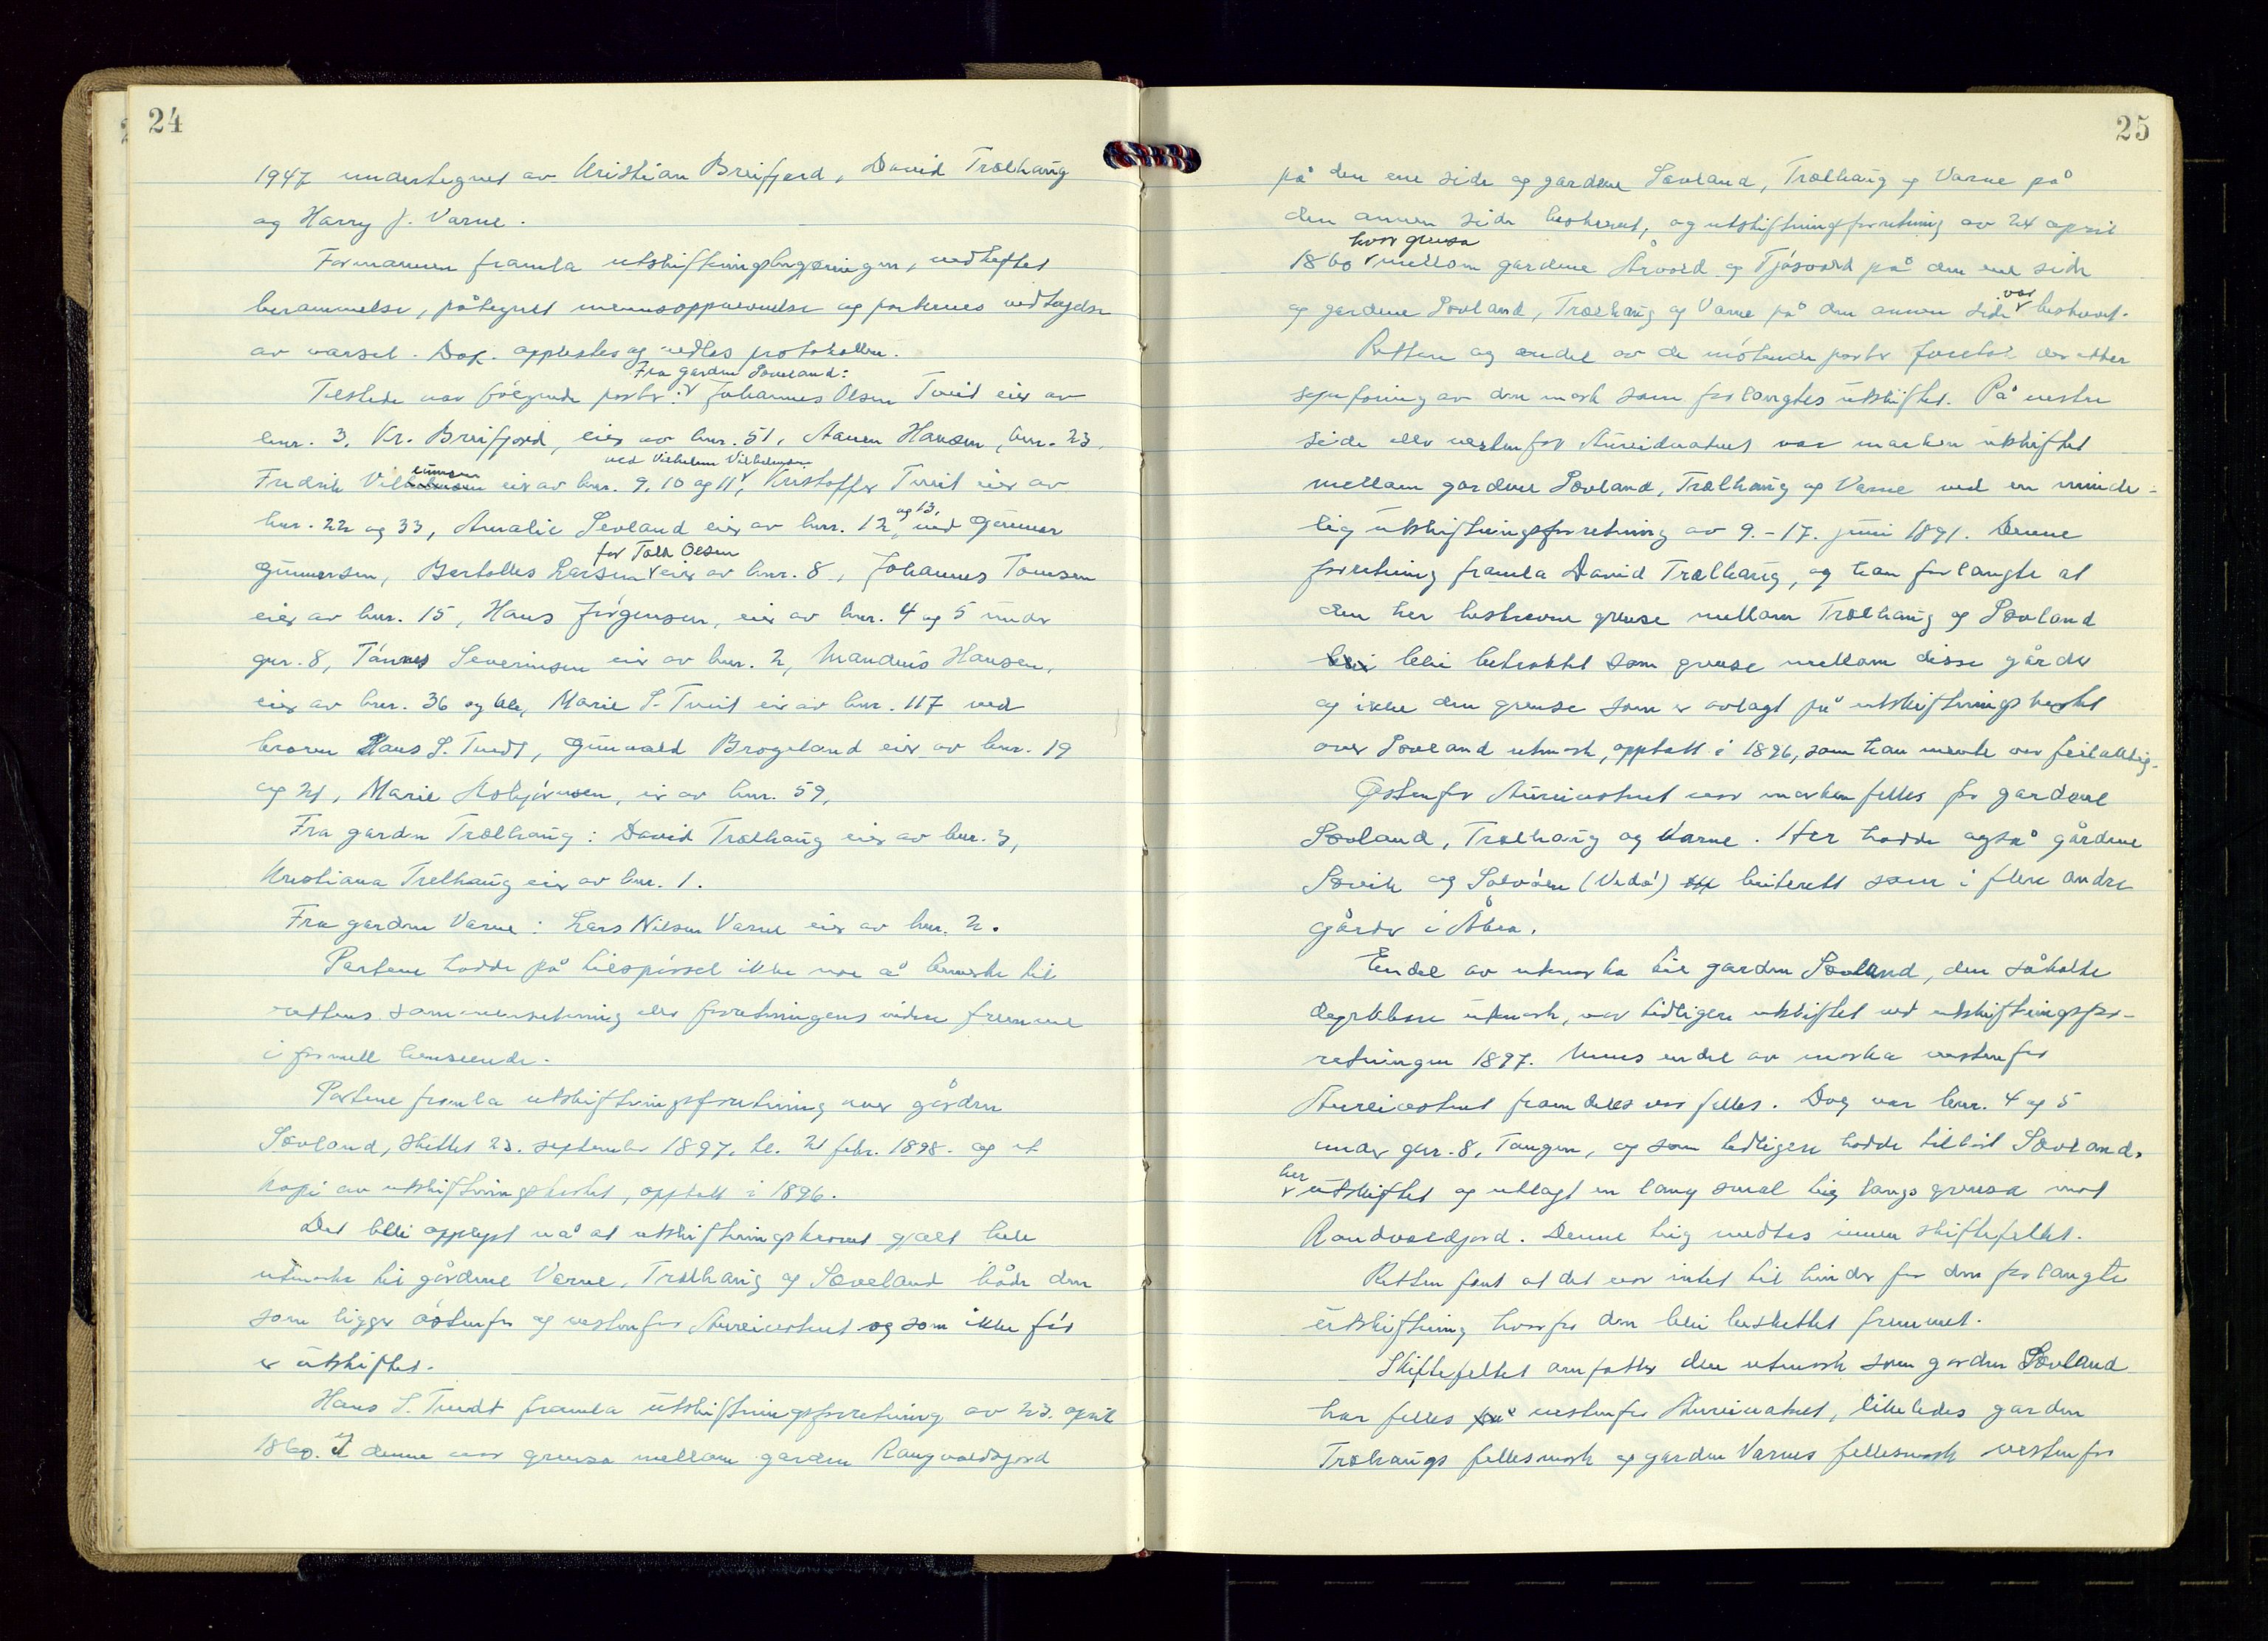 24
1947 undertegnet av Kristian Breifjord, David Trælhaug
og Harry J. Varne.
Formannen framla utskiftingsbegjæringen, vedheftet
berammelse, påtegnet mennsoppnevnelse og partenes vedtagelse
av varsel. Dok. opplestes og vedlas protokollen.
Fra garden Sæveland:
Tilstede var følgende parter: Johannes Olsen Tveit eier av
bnr. 3, Kr. Breifjord, eier av bnr. 51, Aanen Hansen, bnr. 23,
ved Vilhelm Vilhelmsen
Fredrik eier av bnr. 9, 10 og 11, Kristoffer Tveit eier av
og 13,
bnr. 22 og 33, Amalie Sevland eier av bnr. 12 ved Gunnar
for Talla Olsen
Gunnarsen, Bertolles Larsen eier av bnr. 8, Johannes Tomsen
eier av bnr. 15, Hans Jørgensen, eier av bnr. 4 og 5 under
gnr. 8, Tønnes Severinsen eier av bnr. 2, Mandius Hansen,
eier av bnr. 36 og Marie S. Tveit eier av bnr. 117 ved
broren Hans S. Tvedt, Gunvald Brogeland eier av bnr. 19
og 21, Marie Asbjørnsen, eier av bnr. 59,
Fra garden Trælhaug: David Trælhaug eier av bnr. 3,
Kristiana Trelhaug eier av bnr. 1.
Fra garden Varne: Lars Nilsen Varne eier av bnr. 2.
Partene hadde på tilspørsel ikke noe å bemerke til
rettens sammensetning eller forretningens videre fremme
i formell henseende.
Partene framla utskiftningsforretning over gården
Sævland, sluttet 23. september 1897, tl. 21 febr. 1898. og et
kopi av utskiftningskartet, opptatt i 1896.
Det blei opplyst nå at utskiftningskravet gjalt hele
utmarka til gårdene Varne, Trælhaug og Sæveland både den
som ligger østenfor og vestenfor Aureivatnet og som ikke før
er utskiftet.
Hans S. Tvedt framla utskiftningsforretning av 23. april
1860. I denne var grensa mellom garden Rangvaldsjord
25
på den ene side og gardene Sævland, Trælhaug og Varne på
den annen side beskrevet, og utskiftningforretning av 24 april
hvor grensa
1860 mellom gardene Årvold og Tjøsvold på den ene side
var
og gardene Sævland, Trælhaug og Varne på den annen side beskrevet.
Retten og endel av de møtende parter foretok deretter
synfaring av den mark som forlangtes utskiftet. På vestre
side eller vestenfor Aureivatnet var marken utskiftet
mellom gardene Sævland, Trælhaug og Varne ved en minde-
lig utskiftningsforretning av 9.-17. juni 1891. Denne
forretning framla David Trælhaug, og han forlangte at
den her beskrevne grense mellom Trælhaug og Sævland
blei betraktet som grense mellom disse gårder
og ikke den grense som er avlagt på utskiftningskartet
over Sæveland utmark, opptatt i 1896, som han mente var feilaktig.
Østenfor Aureivatnet var marken felles for gardene
Sævland, Trælhaug og Varne. Her hadde også gårdene
Sævik og Salvøen (Vedø) beiterett som i flere andre
gårder i Åkra.
Endel av utmarka til garden Sævland, den såkalte
utmark, var tidligere utskiftet ved utskiftningsfor-
retningen 1897. Mens endel av marka vestenfor
Aureivatnet framdeles var felles. Dog var bnr. 4 og 5
under gnr. 8, Tangen, og som tidligere hadde tilhørt Sævland,
her
utskiftet og utlagt en lang smal teig langs grensa mot
Randvaldjord. Denne teig medtas innen skiftefeltet.
Retten fant at det var intet til hinder for den forlangte
utskiftning hvorfor den blei besluttet fremmet.
Skiftefeltet omfatter den utmark som garden Sævland
har felles vestenfor Aureivatnet, likeledes garden
Trælhaugs fellesmark og garden Varnes fellesmark vestenfor